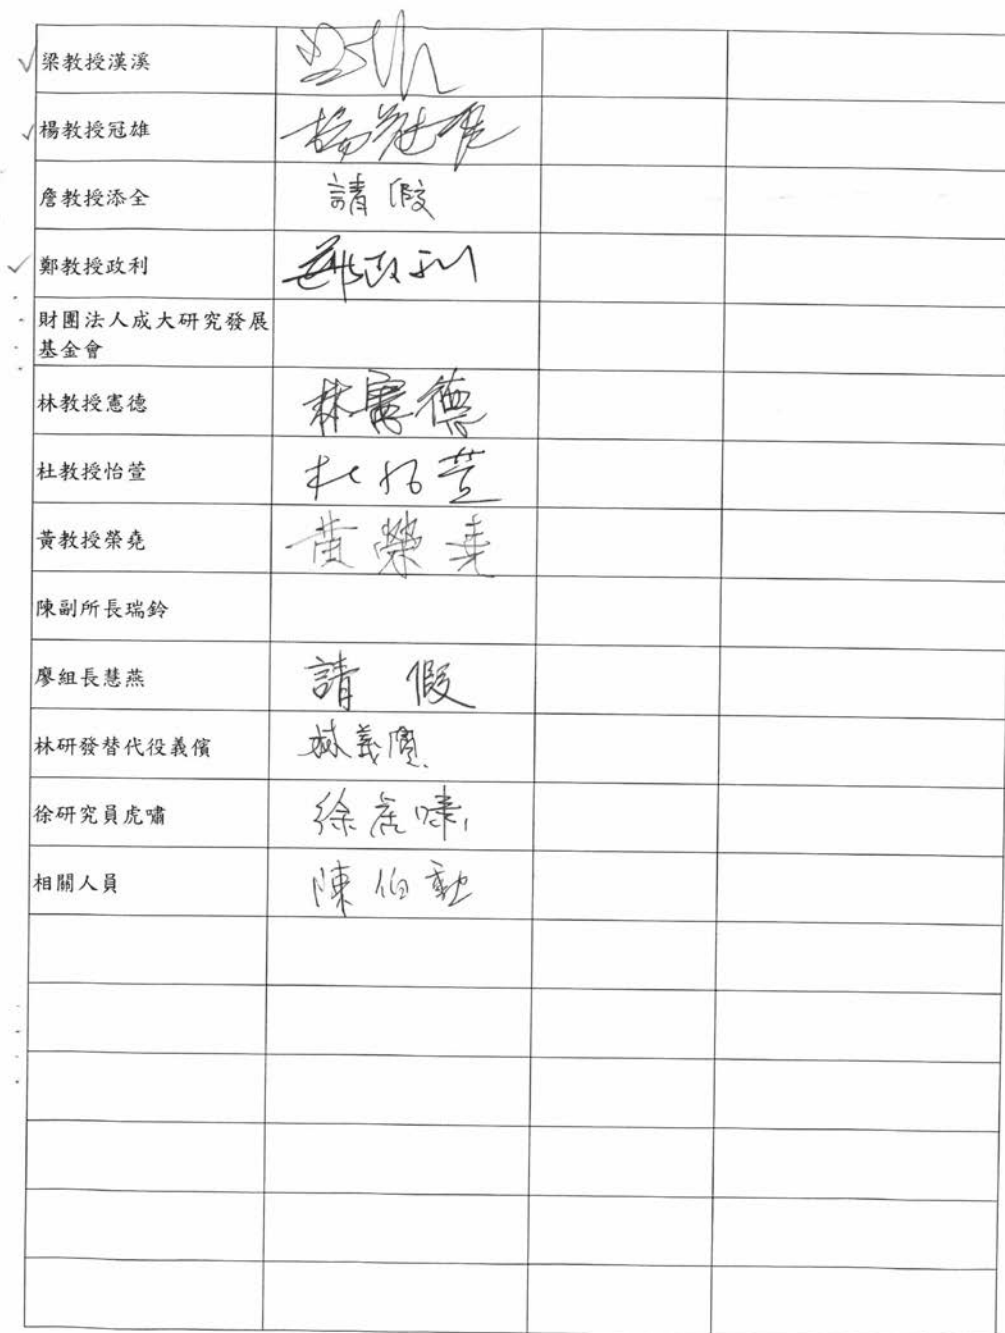 梁教授漢溪
楊教授冠雄 楊冠雄
詹教授添全 請假
鄭教授政利 鄭政利
財團法人成大研究發展
基金會
林教授憲德 林憲德
杜教授怡萱 杜怡萱
黃教授榮堯 黃榮堯
陳副所長瑞鈴
廖組長慧燕 請假
林研發替代役義儐 林義儐
徐研究員虎嘯 徐虎嘯
相關人員 陳伯勳